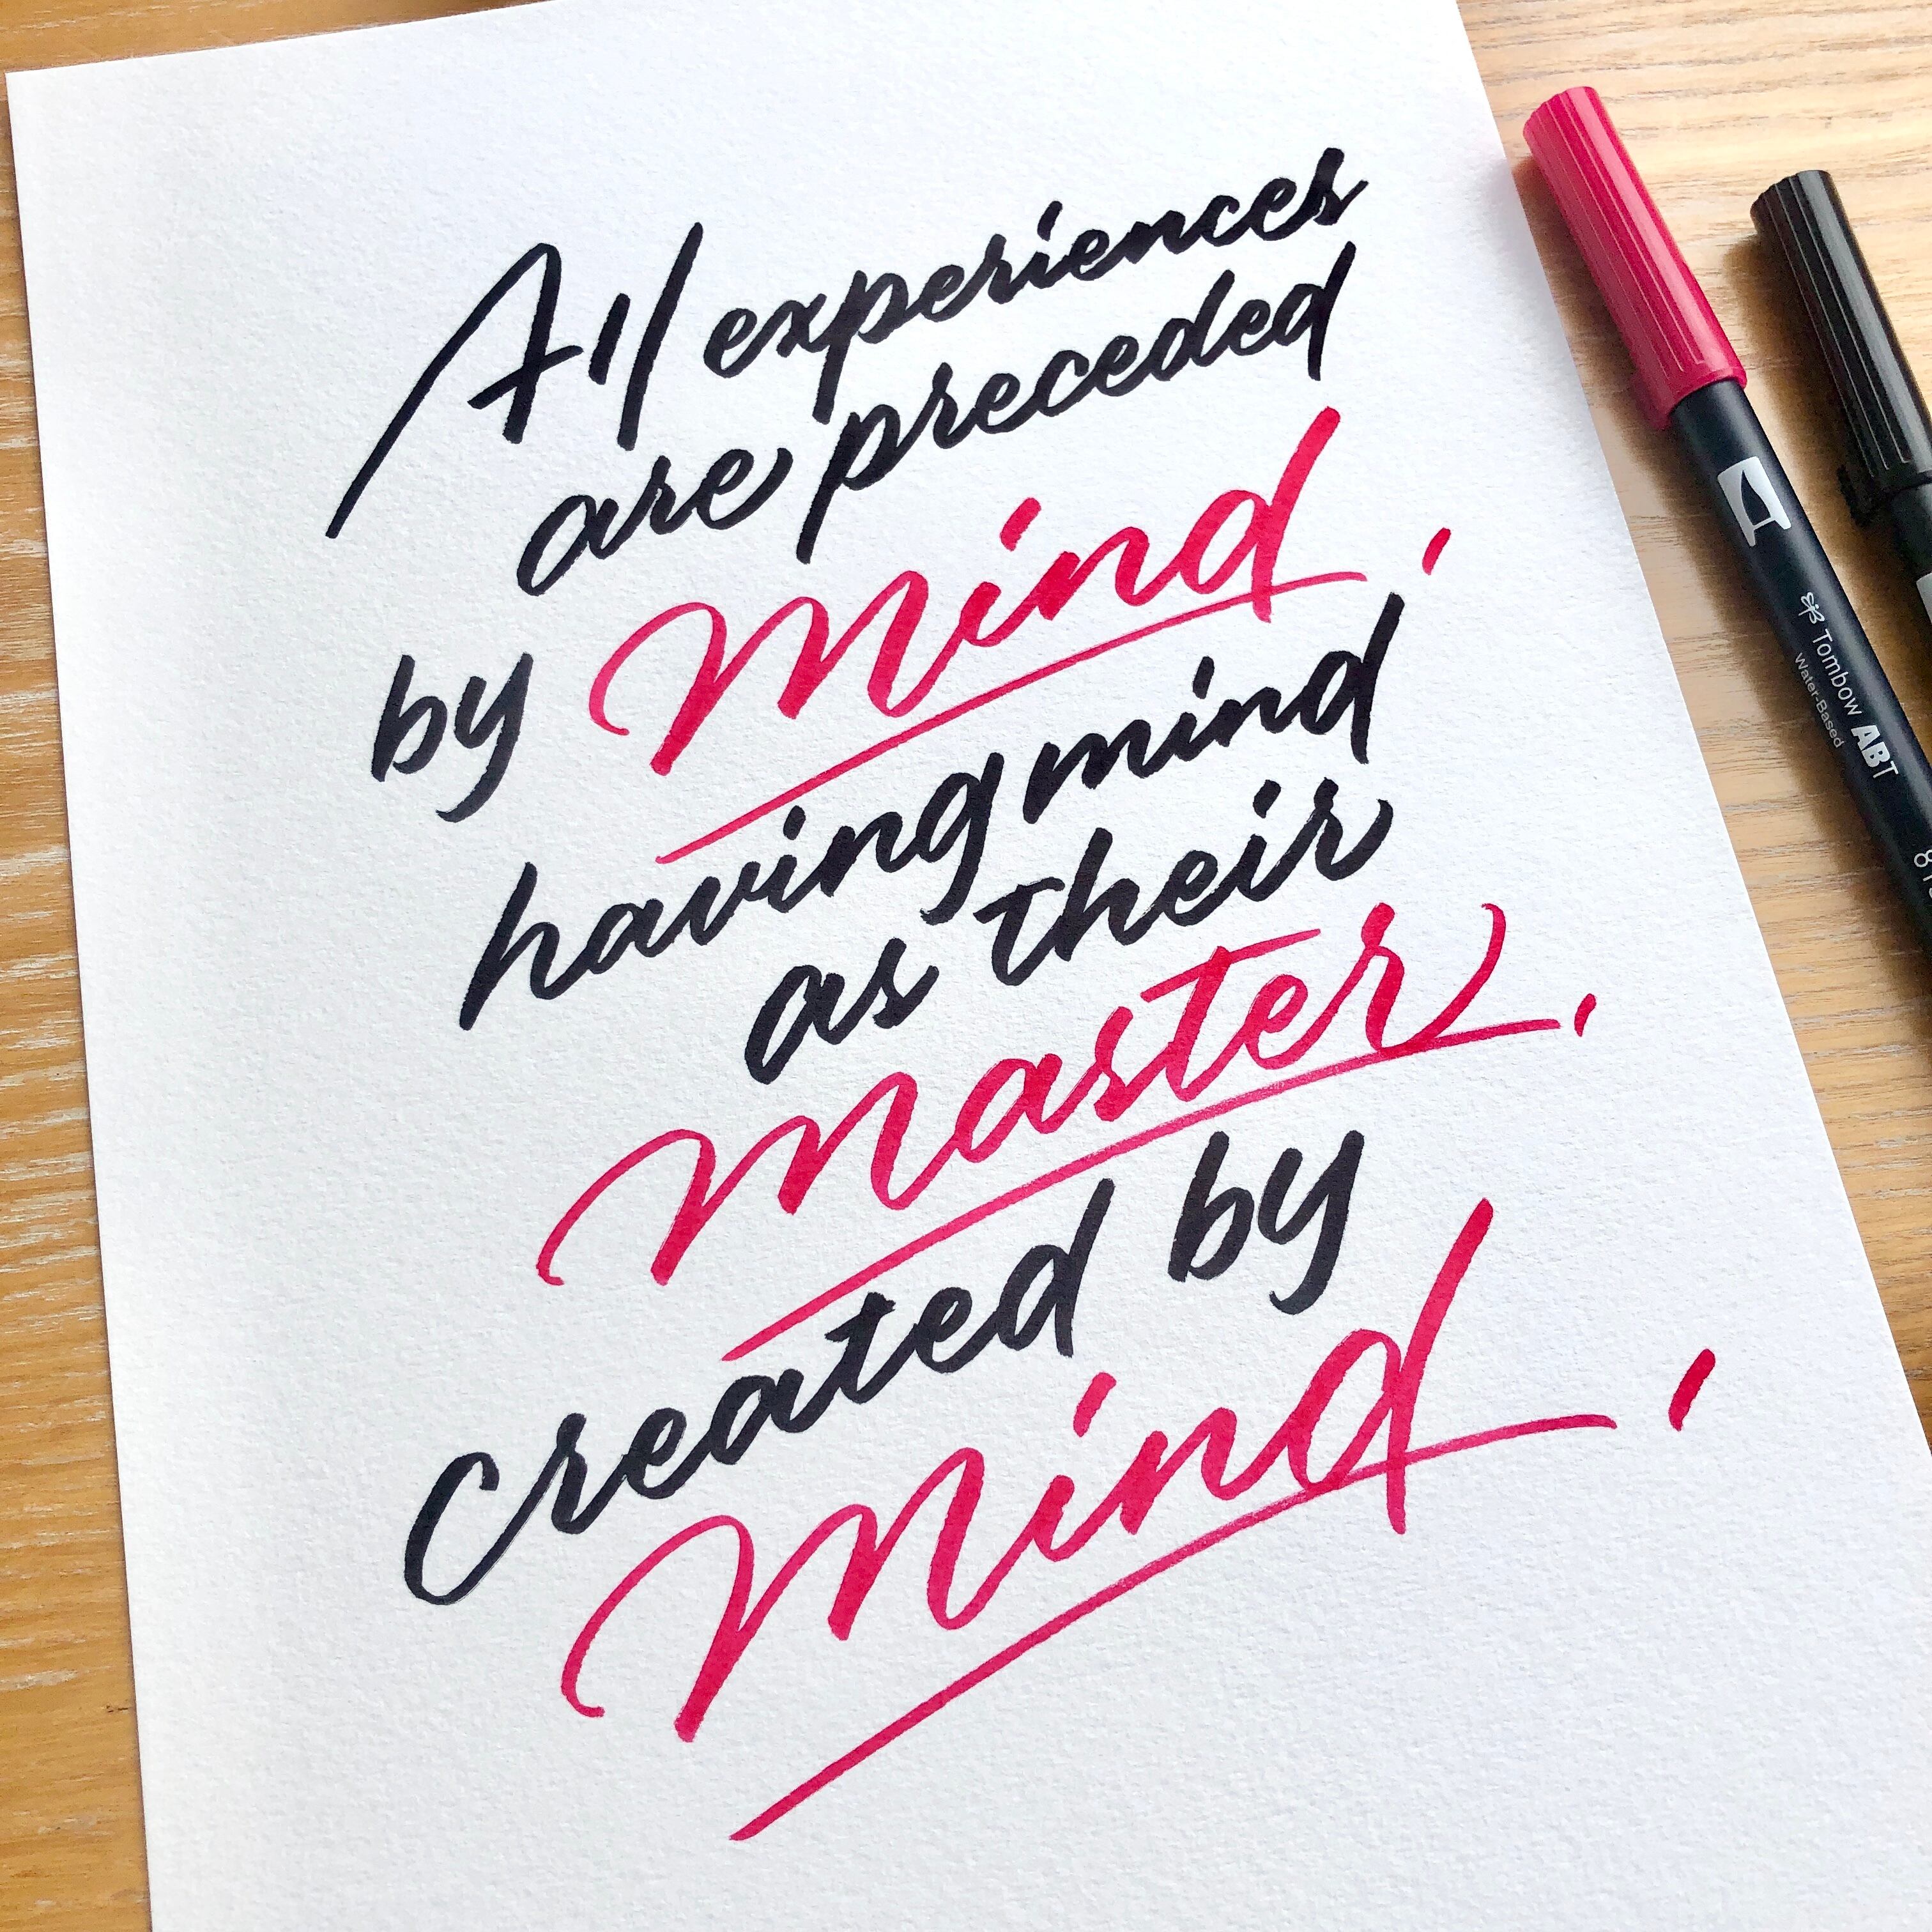 All experiences
are preceded
by Mind,
having mind
as their
Master,
created by
Mind.
Tombow ABT
Water-Based